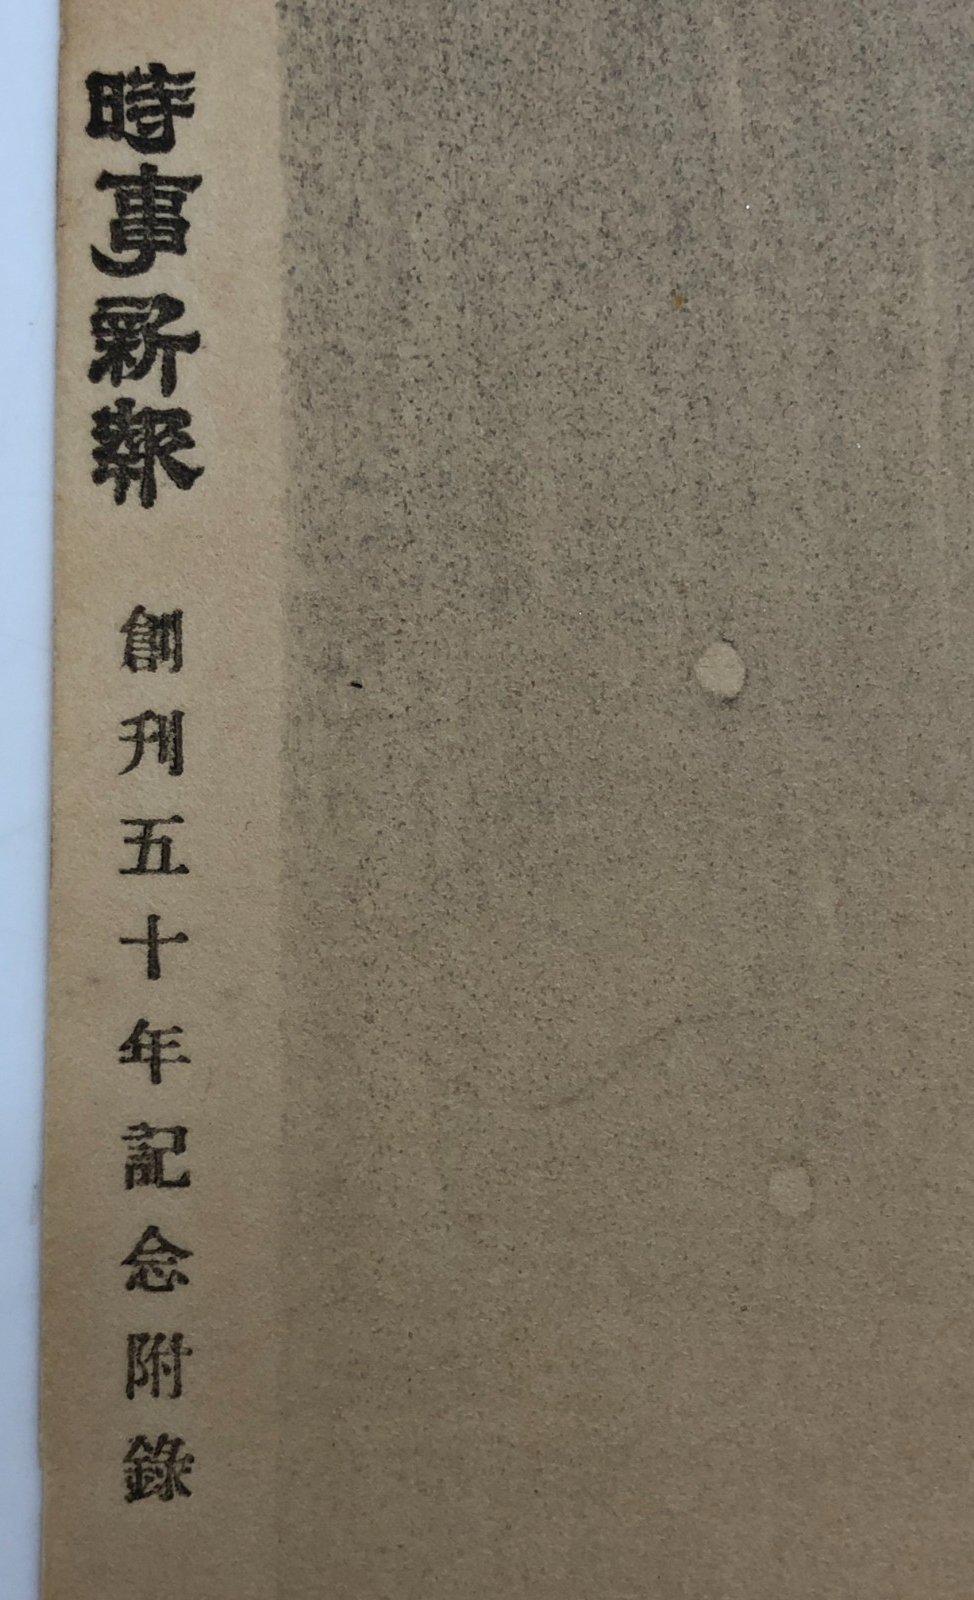 時事新報 創刊五十年記念附錄